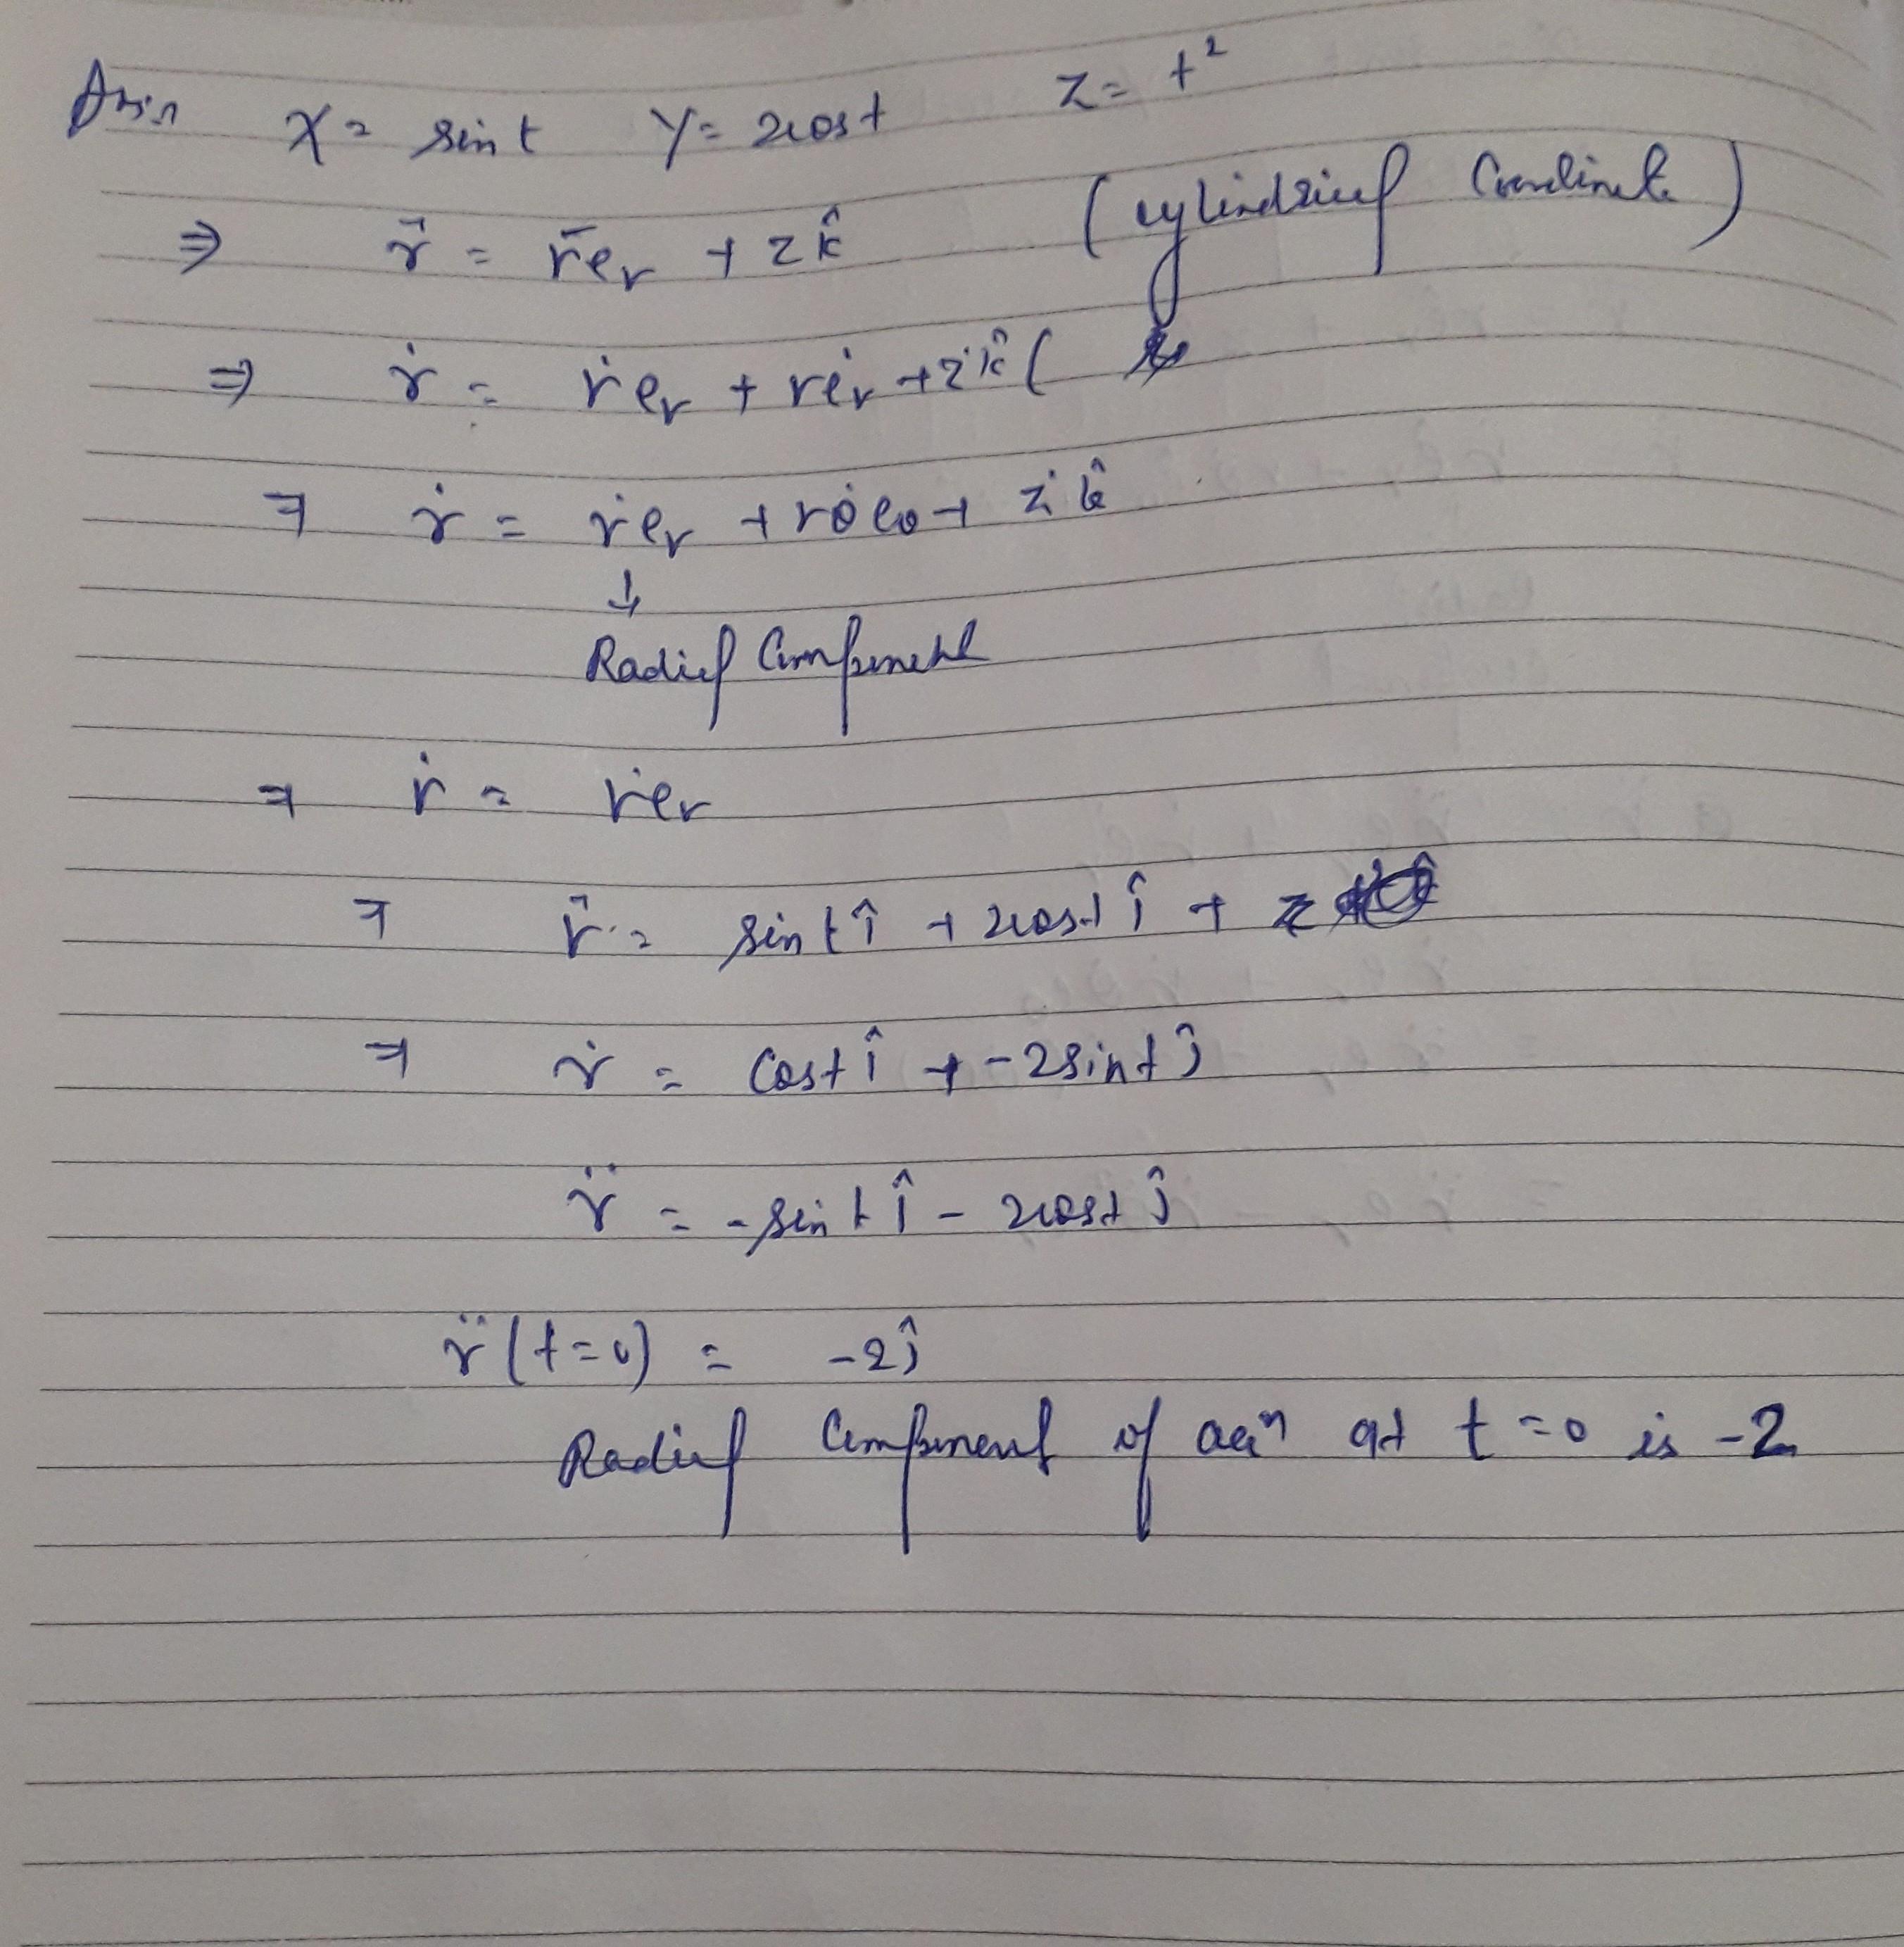 Ansn x = sin t y = 2cost z = t²
⇒ r⃗ = r̄er + zk̂ (cylindrical Coordinate)
⇒ ṙ = ṙer + rėr + żk̂ (
⇒ ṙ = ṙer + rθ̇eθ + żk̂
↓
Radial Component
⇒ ṙ = ṙer
⇒ r⃗ = sin t î + 2cost ĵ + z
⇒ ṙ = Cost î + -2sint ĵ
r̈ = - sin t î - 2cost ĵ
r̈ (t=0) = -2ĵ
Radial Component of accⁿ at t=0 is -2